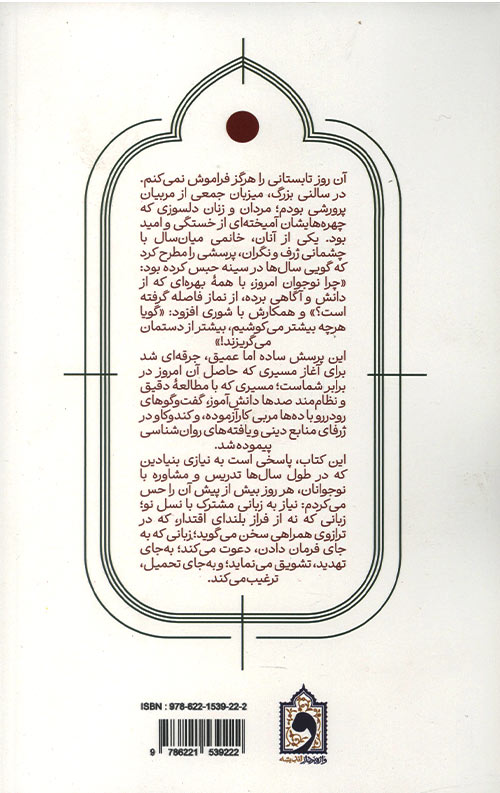 آن روز تابستانی را هرگز فراموش نمی‌کنم.
در سالنی بزرگ، میزبان جمعی از مربیان
پرورشی بودم؛ مردان و زنان دلسوزی که
چهره‌هایشان آمیخته‌ای از خستگی و امید
بود. یکی از آنان، خانمی میان‌سال با
چشمانی ژرف و نگران، پرسشی را مطرح کرد
که گویی سال‌ها در سینه حبس کرده بود:
«چرا نوجوان امروز، با همهٔ بهره‌ای که از
دانش و آگاهی برده، از نماز فاصله گرفته
است؟» و همکارش با شوری افزود: «گویا
هرچه بیشتر می‌کوشیم، بیشتر از دستمان
می‌گریزند!»
این پرسش ساده اما عمیق، جرقه‌ای شد
برای آغاز مسیری که حاصل آن امروز در
برابر شماست؛ مسیری که با مطالعهٔ دقیق
و نظام‌مند صدها دانش‌آموز، گفت‌وگوهای
رودررو با ده‌ها مربی کارآزموده، و کندوکاو در
ژرفای منابع دینی و یافته‌های روان‌شناسی
پیموده شد.
این کتاب، پاسخی است به نیازی بنیادین
که در طول سال‌ها تدریس و مشاوره با
نوجوانان، هر روز بیش از پیش آن را حس
می‌کردم: نیاز به زبانی مشترک با نسل نو؛
زبانی که نه از فراز بلندای اقتدار، که در
ترازوی همراهی سخن می‌گوید؛ زبانی که به
جای فرمان دادن، دعوت می‌کند؛ به‌جای
تهدید، تشویق می‌نماید؛ و به‌جای تحمیل،
ترغیب می‌کند.
ISBN : 978-622-1539-22-2
9 786221 539222
و